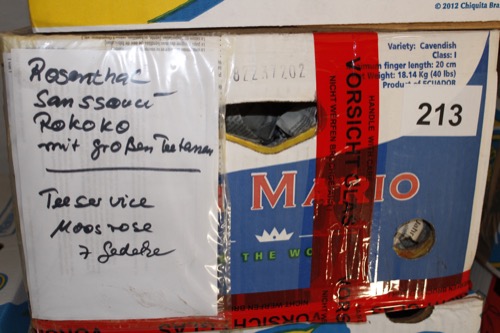 © 2012 Chiquita Bra
Variety: Cavendish
Class: I
finger length: 20 cm
Weight: 18.14 Kg (40 lbs)
Product of ECUADOR
213
Rosenthal
Sanssouci
Rokoko
mit großen Teetassen
Teeservice
Moosrose
7 Gedecke
MARIO
THE WO
VORSICHT GLAS
NICHT WERFEN
HANDLE WITH CARE